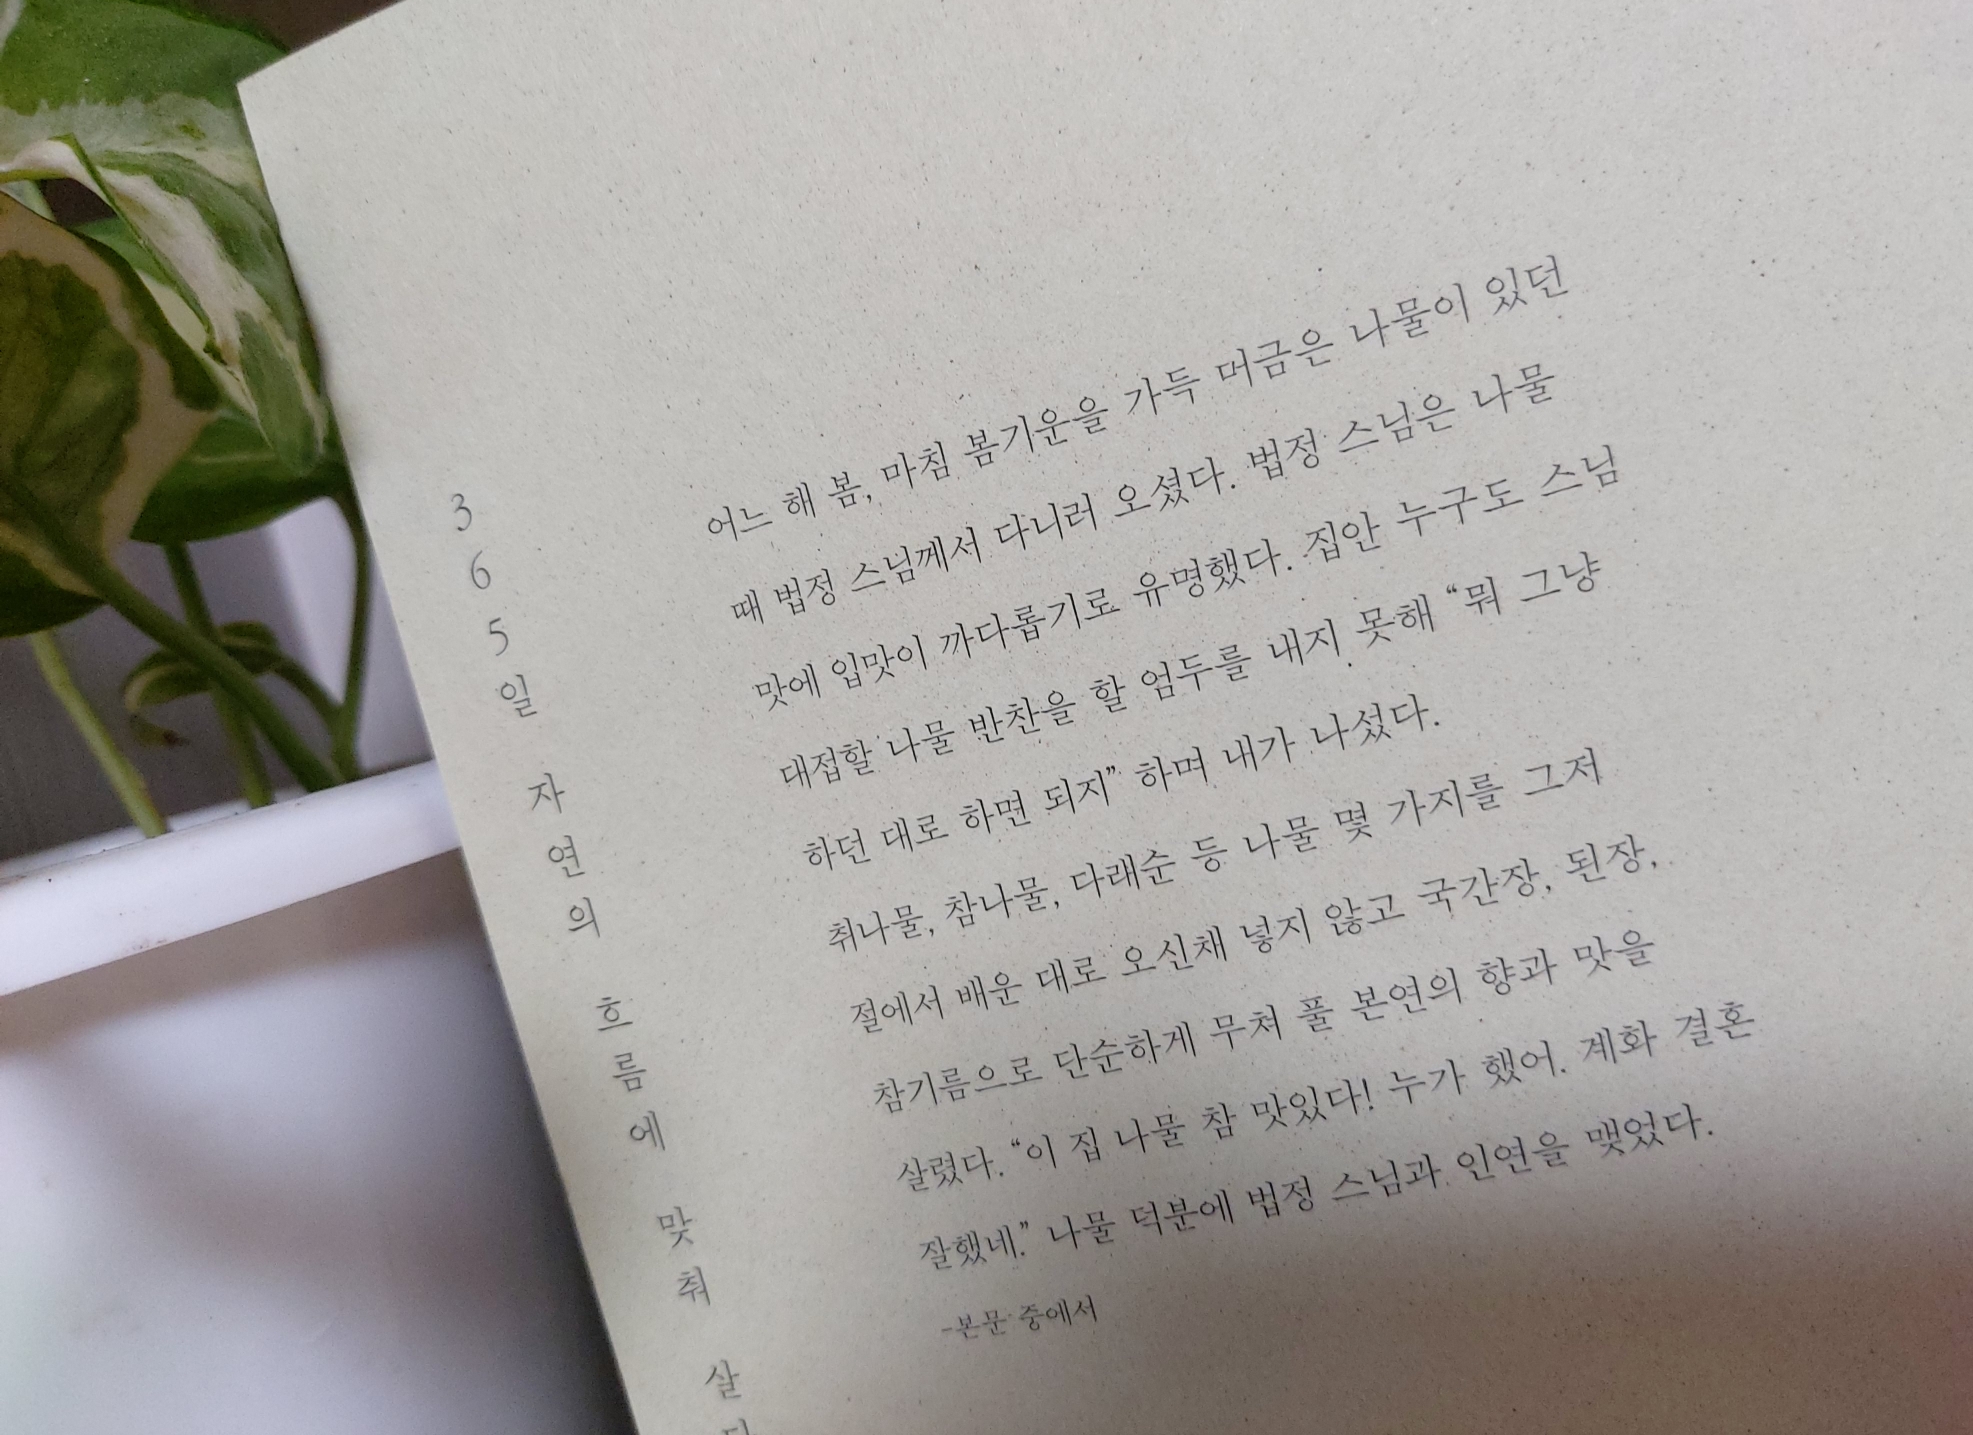 365일 자연의 흐름에 맞춰 살
어느 해 봄, 마침 봄기운을 가득 머금은 나물이 있던
때 법정 스님께서 다니러 오셨다. 법정 스님은 나물
맛에 입맛이 까다롭기로 유명했다. 집안 누구도 스님
대접할 나물 반찬을 할 엄두를 내지 못해 “뭐 그냥
하던 대로 하면 되지” 하며 내가 나섰다.
취나물, 참나물, 다래순 등 나물 몇 가지를 그저
절에서 배운 대로 오신채 넣지 않고 국간장, 된장,
참기름으로 단순하게 무쳐 풀 본연의 향과 맛을
살렸다. “이 집 나물 참 맛있다! 누가 했어. 계화 결혼
잘했네.” 나물 덕분에 법정 스님과 인연을 맺었다.
-본문 중에서